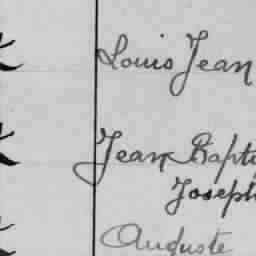 Louis Jean
Jean Bapti
Joseph
Auguste